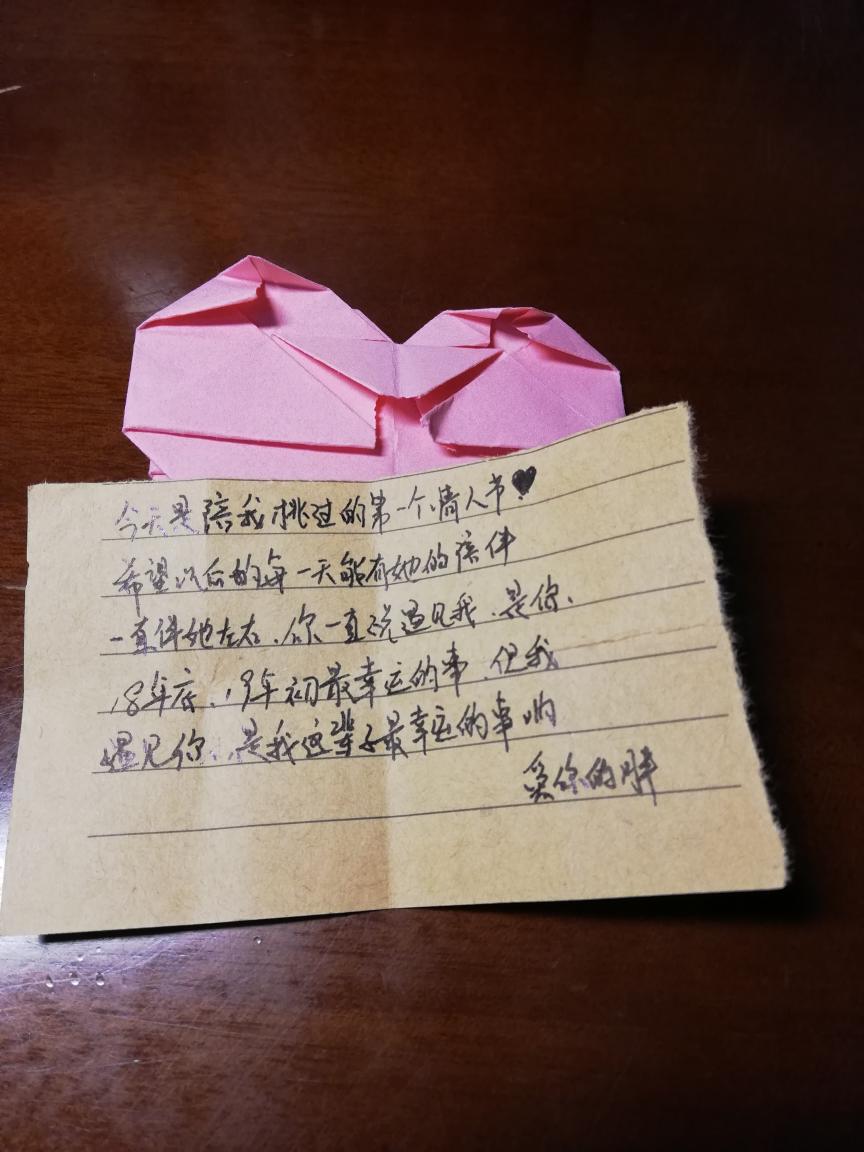 今天是陪我挑过的第一个情人节♥
希望以后的每一天能有她的陪伴
一直伴她左右、你一直说遇见我、是你、
18年底、19年初最幸运的事、但我
遇见你、是我这辈子最幸运的事哟
爱你的胖